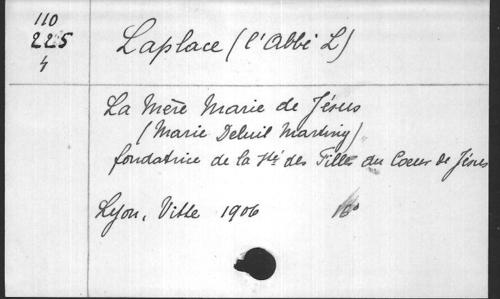 110
225
4
Laplace (l'Abbé L)
La Mère Marie de Jésus
(Marie Deluil Martiny)
fondatrice de la Sté des Filles du Coeur de Jésus
Lyon, Vitte 1906 16°